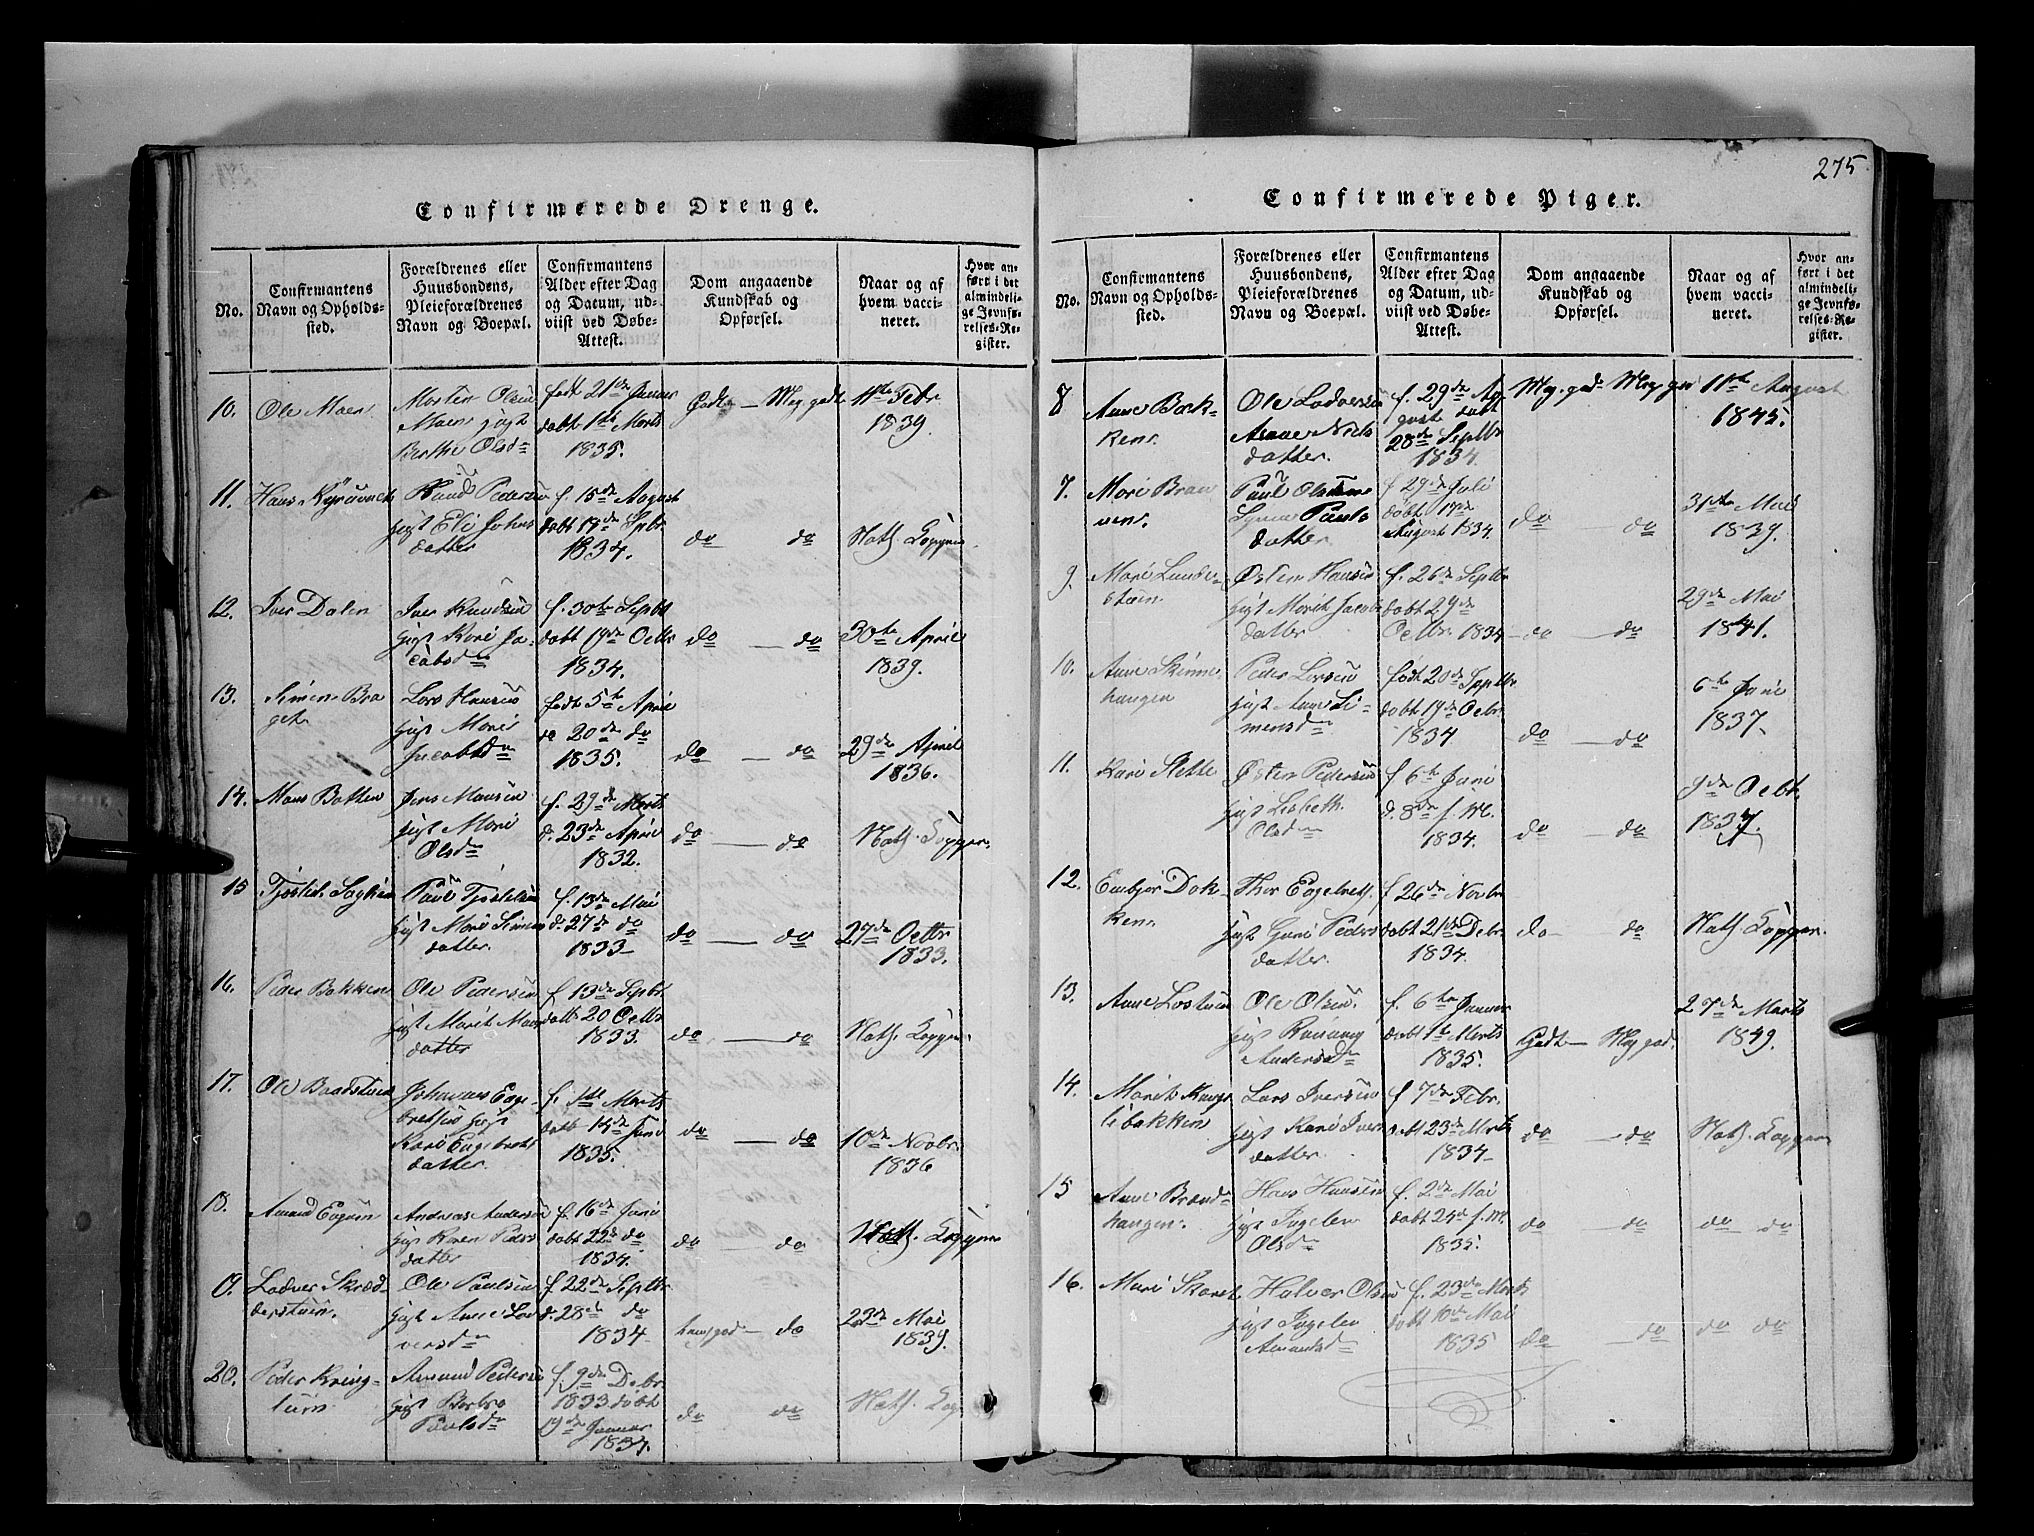 275
Confirmerede Drenge.
No.
Confirmantens
Navn og Opholds-
sted.
Forældrenes eller
Huusbondens,
Pleieforældrenes
Navn og Boepæl.
Confirmantens
Alder efter Dag
og Datum, ud-
viist ved Døbe-
Attest.
Dom angaaende
Kundskab og
Opførsel.
Naar og af
hvem vacci-
neret.
Hvor an-
ført i det
almindeli-
ge Jevnfø-
relses-Re-
gister.
10. Ole Moen
Morten Olsen
Moen gift
Berthe Olsdn
født 21de Januar
døbt 1ste Marts
1835.
Godt — Meg. godt
11te Febr
1839.
11. Hans
Knud Pedersen
gift Eli Johns
datter
f. 15de August
døbt 14de Spbr
1834.
do — do
Nath. Kopper.
12. Iver Dalen
Iver Knudsen
gift Kari Ja-
cobsdn
f. 30te Septbr
døbt 19de Octbr
1834.
do — do
30te April
1839.
13. Simen Bra
get.
Lars Hansen
gift Mari
Jacobsdn
født 5te April
do 20de do
1835.
do — do
29de April
1836.
14. Mons Batten
Jens Monsen
gift Mari
Olsdn
f. 29de Marts
d. 23de April
1832.
do — do
Nath. Kopper.
15 Tjøstel
Paul Tjøstelsen
gift Mari Simens
datter.
f. 13de Mai
d. 27de do
1833
do — do
27de Octbr
1833.
16. Peder Bakken
Ole Pedersen
gift Marit Mons
datter
f. 13de Septbr.
døbt 20 Octbr
1833.
do — do
Nath. Kopper.
17. Ole Baadstuen
Johannes Enge-
bretsen gift
Kari Engebrets
datter.
f. 1ste Marts
døbt 14de Juni
1835.
do — do
10de Novbr.
1836
18. Amund
Andreas Andersen
gift Karen Peders
datter
f. 16de Juni
døbt 22de do
1834.
do — do
Nath. Kopper
19. Lodver Skræd-
derstuen.
Ole Paulsen
gift Anne Lod
versdn
f. 22de Septbr.
d. 28de do
1834
do
23de Mai
1839.
20. Peder Kring-
tuen
Amund Pedersen
gift Barbro
Paulsdn
f. 9de Debr
1833 døbt
19de Januar
1834.
do do
Nath. Kop
Confirmerede Piger.
No.
Confirmantens
Navn og Opholds-
sted.
Forældrenes eller
Huusbondens,
Pleieforældrenes
Navn og Boepæl.
Confirmantens
Alder efter Dag
og Datum, ud-
viist ved Døbe-
Attest.
Dom angaaende
Kundskab og
Opførsel.
Naar og af
hvem vacci-
neret.
Hvor an-
ført i det
almindeli-
ge Jevnfø-
relses-Re-
gister.
8 Anne Bak-
ken.
Ole Lodversen
Anne Niels
datter.
f. 29de Au
gust døbt
28de Septbr
1834.
Meg. godt Meg god
11te August
1845.
7. Mari Brau
nen.
Paul Olsen
Pauls
datter
f 29de Juli
døbt 17de
August 1834.
do — do
31te Mai
1839.
9. Mari Lunde-
stuen.
Østen Hansen
gift Marit Jacobs
datter
f. 26de Septbr
døbt 29de
Octbr. 1834
do — do
29de Mai
1841.
10. Anne Skinne
haugen
Peder Larsen
gift Anne Si-
mensdn
født 20de Septbr
døbt 19de Octbr
1834
do — do
6te Juni
1837.
11. Kari Slette
Østen Pedersen
gift Lisbeth
Olsdn
f 6te Juni
d. 8de s. M.
1834.
do do
9de Octbr.
1837.
12. Embjør Dok-
ken.
Thor Engebrets.
gift Guri Peders
datter.
f 26de Novbr
døbt 21de Debr.
1834.
do do
Nath. Kopper.
13. Anne
Ole Olsen.
gift Rannung
Andersdn
f. 6te Januar
døbt 1te Marts
1835.
Godt — Meg god.
27de Marts
1849.
14. Marit Haug
libakken
Lars Iversen
gift Kari Ivers
datter.
f 7de Febr.
døbt 23de Marts
1834
do — do
Nath. Kopper
15 Anne Brænd-
haugen.
Hans Hansen
gift Ingeler
Olsdn
f. 2de Mai
døbt 24d s. M.
1835.
do do do do
16. Mari
Halvor Olsen
gift Ingeler
Amundsdn
f. 23de Marts
døbt 10de Mai
1835
do do do do